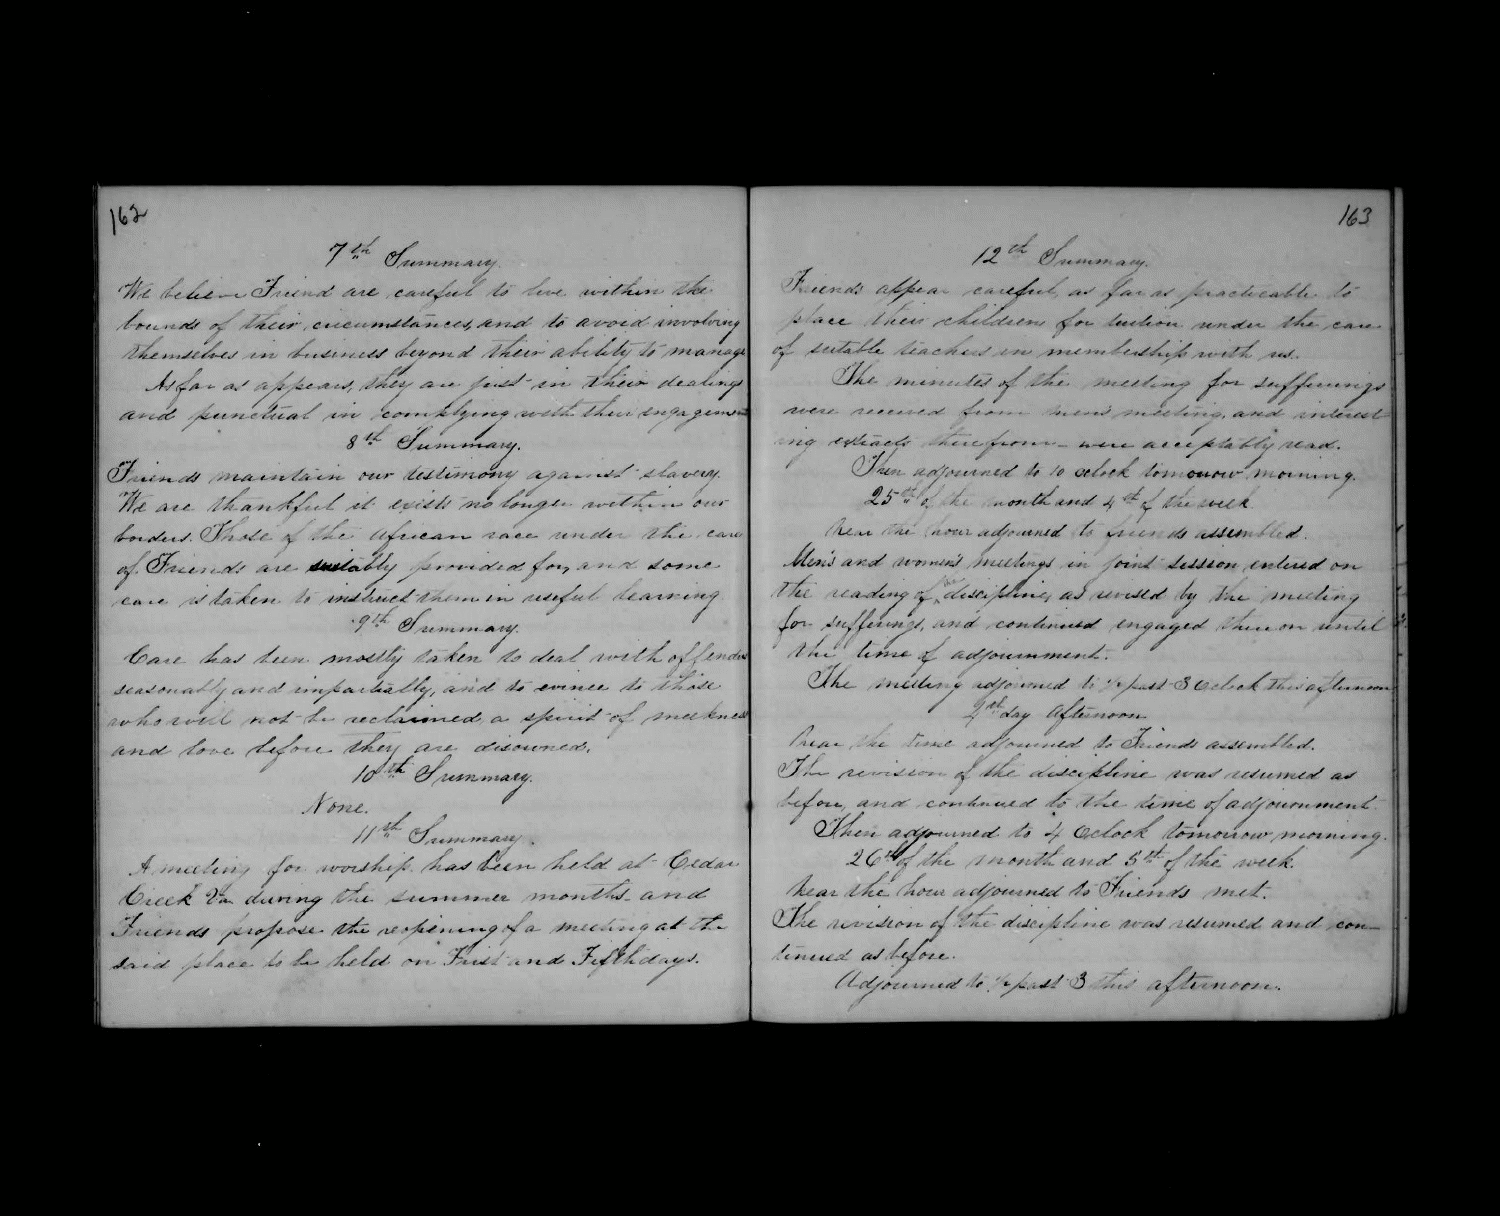 162
7th Summary.
We believe Friend are careful to live within the
bounds of their circumstances, and to avoid involving
themselves in business beyond their ability to manage
As far as appears, they are just in their dealings
and punctual in complying with their engagements
8th Summary.
Friends maintain our testimony against slavery.
We are thankful it exists no longer within our
borders. Those of the African race under the care
of Friends are suitably provided for, and some
care is taken to instruct them in useful learning
9th Summary.
Care has been mostly taken to deal with offenders
seasonably and impartially, and to evince to those
who will not be reclaimed a spirit of meekness
and love before they are disowned.
10th Summary.
None.
11th Summary.
A meeting for worship has been held at Cedar
Creek Va during the summer months and
Friends propose the reopening of a meeting at the
said place to be held on First and Fifthdays.
163
12th Summary.
Friends appear careful as far as practicable to
place their children for tuition under the care
of suitable teachers in membership with us.
The minutes of the meeting for sufferings
were received from men's meeting, and interest
ing extracts therefrom were acceptably read.
Then adjourned to 10 oclock tomorrow morning.
25th of the month and 4th of the week
Near the hour adjourned to friends assembled.
Men's and women's meetings in joint session, entered on
the reading of the discipline, as revised by the meeting
for sufferings, and continued engaged thereon until
the time of adjournment.
The meeting adjourned to ½ past 3 Oclock this afternoon
4th day Afternoon
Near the time adjourned to Friends assembled.
The revision of the discipline was resumed as
before, and continued to the time of adjournment.
Then adjourned to 4 Oclock tomorrow morning.
26th of the month and 5th of the week.
Near the hour adjourned to Friends met.
The revision of the discipline was resumed and con-
tinued as before.
Adjourned to ½ past 3 this afternoon.